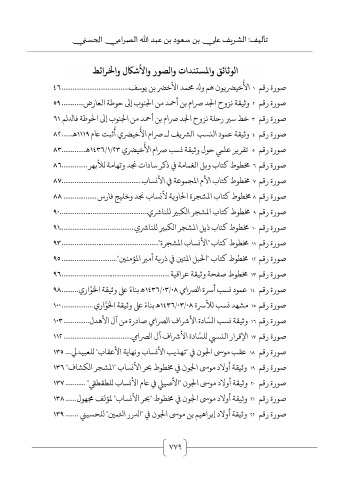 تأليف: الشريف علي بن سعود بن عبد الله الصرامي الحسني
الوثائق والمستندات والصور والأشكال والخرائط
صورة رقم ١ الأخيضريون هم ولد محمد الأخضر بن يوسف ٤٦
صورة رقم ٢ وثيقة نزوح الجد صرام بن أحمد من الجنوب إلى حوطة العارض ٥٩
صورة رقم ٣ خط سير رحلة نزوح الجد صرام بن أحمد من الجنوب إلى الحوطة فالدلم ٦١
صورة رقم ٤ وثيقة عمود النسب الشريف لـ صرام الأخيضري أثبت عام ١١١٩هـ ٨٢
صورة رقم ٥ تقرير علمي حول وثيقة نسب صرام الأخيضري ١٤٣٦/١/٢٣هـ ٨٣
صورة رقم ٦ مخطوط كتاب وبل الغمامة في ذكر سادات نجد وتهامة للأبهر ٨٦
صورة رقم ٧ مخطوط كتاب الأم المجموعة في الأنساب ٨٧
صورة رقم ٨ مخطوط كتاب المشجرة الحاوية لأنساب نجد وخليج فارس ٨٨
صورة رقم ٩ مخطوط كتاب المشجر الكبير للناشري ٩٠
صورة رقم ١٠ مخطوط كتاب ذيل المشجر الكبير للناشري ٩١
صورة رقم ١١ مخطوط كتاب "الأنساب المشجرة" ٩٣
صورة رقم ١٢ مخطوط كتاب "الحبل المتين في ذرية أمير المؤمنين" ٩٥
صورة رقم ١٣ مخطوط صفحة وثيقة عراقية ٩٦
صورة رقم ١٤ عمود نسب أسرة الصرامي ١٤٣٦/٠٣/٠٨هـ بناءً على وثيقة الخوّاري ٩٨
صورة رقم ١٥ مشهد نسب للأسرة ١٤٣٦/٠٣/٠٨هـ بناءً على وثيقة الخوّاري ١٠٠
صورة رقم ١٦ وثيقة نسب السّادة الأشراف الصرامي صادرة من آل الأهدل ١٠٣
صورة رقم ١٧ الإقرار النسبي للسّادة الأشراف آل الصرامي ١١٢
صورة رقم ١٨ عقب موسى الجون في "تهذيب الأنساب ونهاية الأعقاب" للعبيدلي ١٣٥
صورة رقم ١٩ وثيقة أولاد موسى الجون في مخطوط بحر الأنساب "المشجر الكشاف" ١٣٦
صورة رقم ٢٠ وثيقة أولاد موسى الجون "الأصيلي في عام الأنساب للطقطقي" ١٣٧
صورة رقم ٢١ وثيقة أولاد موسى الجون في مخطوط "بحر الأنساب" لمؤلف مجهول ١٣٨
صورة رقم ٢٢ وثيقة أولاد إبراهيم بن موسى الجون في "الدرر الثمين" للحسيني ١٣٩
٧٧٩